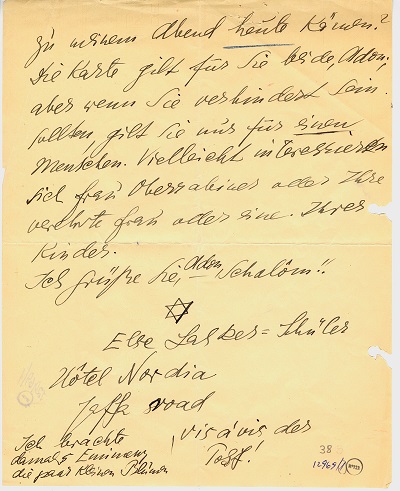 zu meinem Abend heute kämen?
Die Karte gilt für Sie beide, Adon,
aber wenn Sie verhindert sein
sollten, gilt sie nur für einen
Menschen. Vielleicht interessieren
sich Frau Oberrabiner oder Ihre
verehrte Frau oder eine Ihrer
Kinder.
Ich grüße Sie, Adon, Schalôm!!
Else Lasker=Schüler
Hôtel Nordia
Jaffa road
vis à vis der
Post!
Ich brachte
damals
die paar kleinen Blumen
38
12969/1